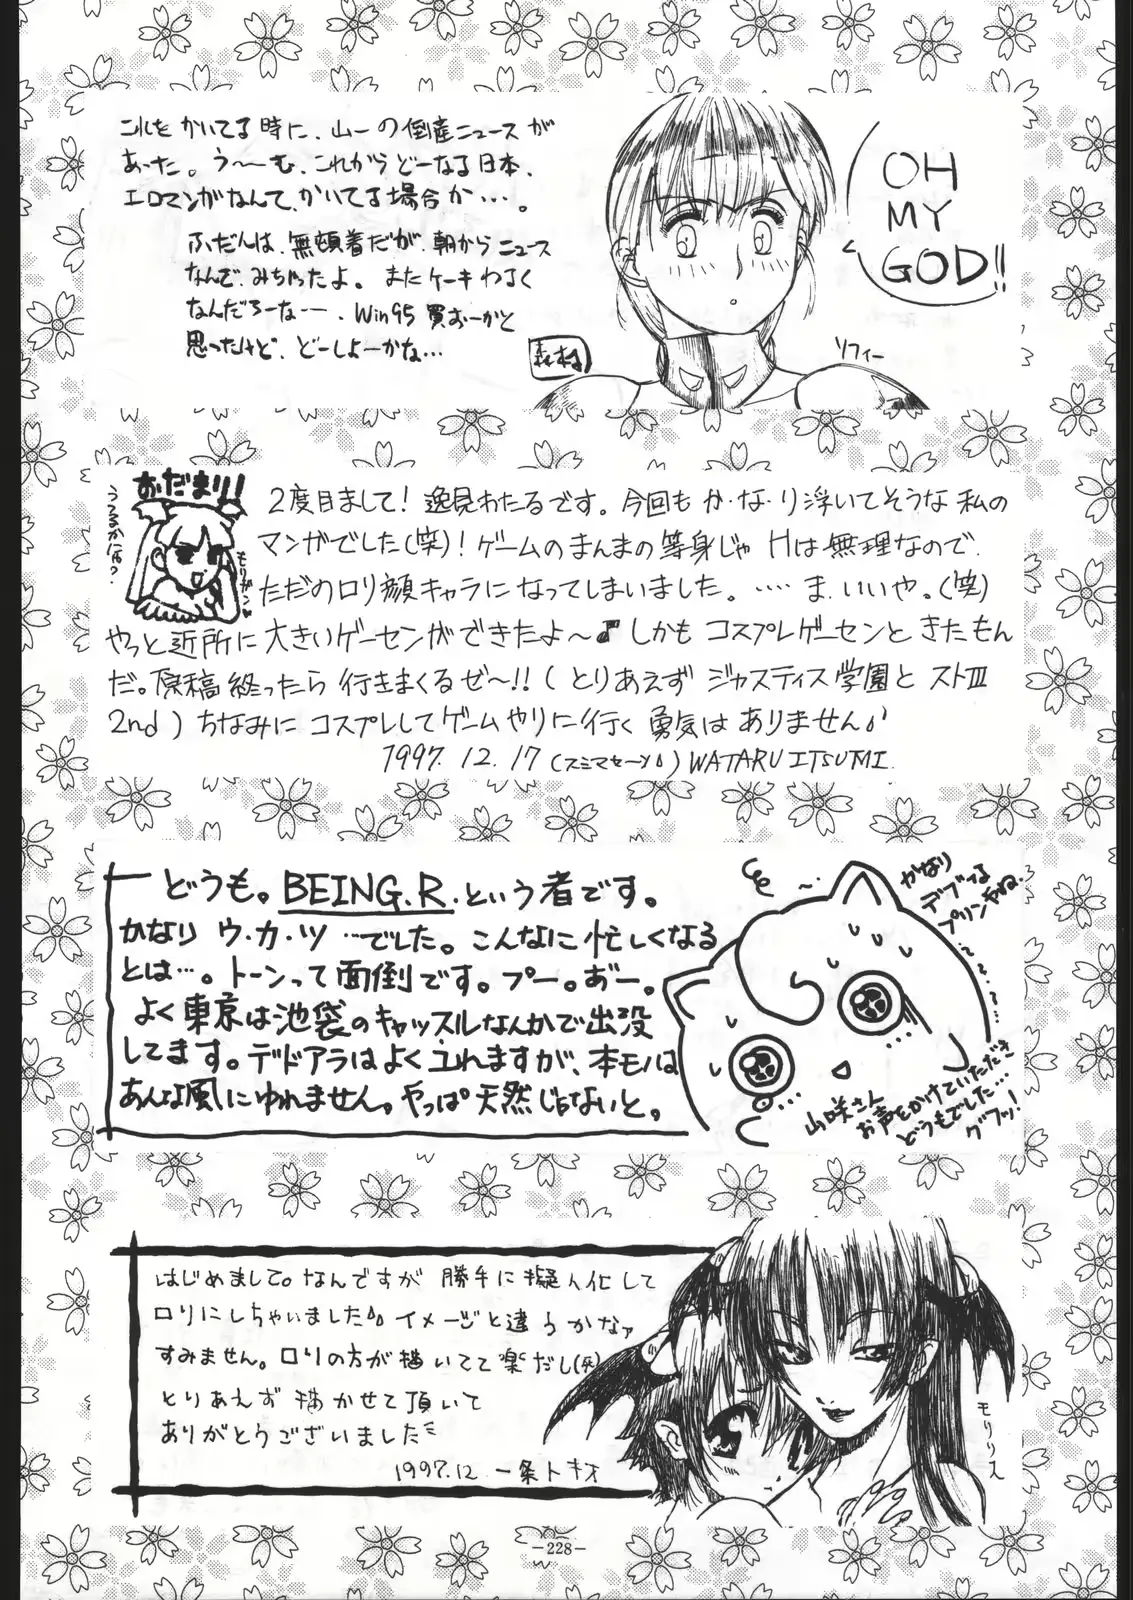 これを かいてる時に、山一の倒産ニュースが
あった。う〜む、これからどーなる日本、
エロマンガなんて、かいてる場合か…。
ふだんは、無頓着だが、朝からニュース
なんで、みちゃったよ。またケーキわるく
なんだろーなー、Win95 買おーかと
思ったけど、どーしよーかな…
森村
OH
MY
GOD!!
ソフィー
おだまり!!
うるるかに何?
モリガン
2度目まして! 逸見わたるです。今回も か・な・り浮いてそうな私の
マンガでした(笑)! ゲームのまんまの等身じゃ Hは無理なので、
ただのロリ顔キャラになってしまいました。…… ま、いいや。(笑)
やっと近所に大きいゲーセンができたよ〜♪しかもコスプレゲーセンときたもん
だ。原稿終ったら 行きまくるぜ〜!!(とりあえず ジャスティス学園と ストⅢ
2nd)ちなみに コスプレしてゲームやりに行く 勇気は ありません
1997.12.17(スミマセーン)WATARU ITSUMI.
どうも。BEING.R.という者です。
かなり ウ・カ・ツ …でした。こんなに 忙しくなる
とは…。トーンって面倒です。プー。あ゛ー。
よく東京は池袋のキャッスルなんかで出没
してます。デドアラはよくユれますが、本モノは
あんな風にゆれません。やっぱ天然じゃないと。
かなり
デブってる
プリンやね。
山咲さん
お声をかけていただき
どうもでした…
グフッ!
はじめまして。なんですが 勝手に擬人化して
ロリにしちゃいました イメージと違うかなァ
すみません。ロリの方が描いてて楽だし(死)
とりあえず 描かせて頂いて
ありがとうございました
1997.12 一条トキオ
モリリス
-228-